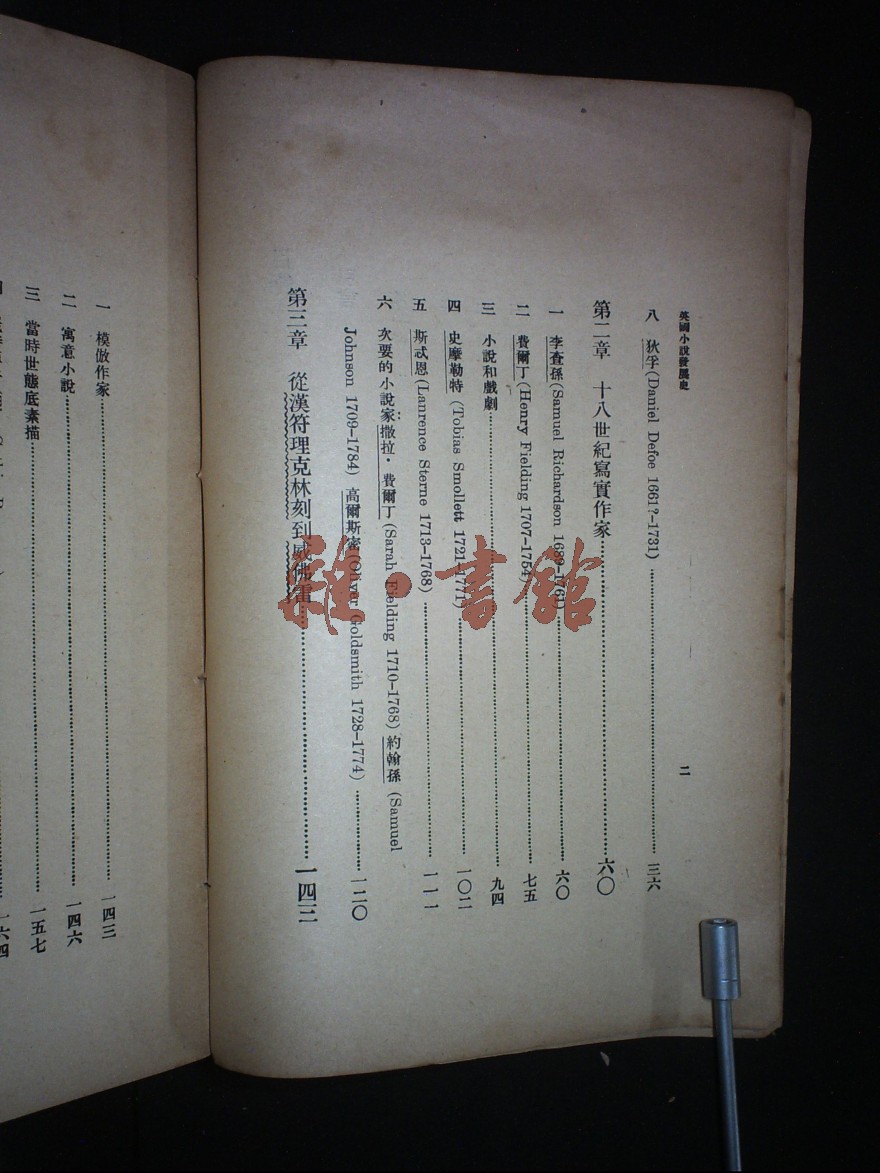 英國小說發展史
二
八 狄孚(Daniel Defoe 1661?-1731)……三六
第二章 十八世紀寫實作家……六〇
一 李查孫(Samuel Richardson 1689-1761)……六〇
二 費爾丁(Henry Fielding 1707-1754)……七五
三 小說和戲劇……九四
四 史摩勒特(Tobias Smollett 1721-1771)……一〇二
五 斯忒恩(Lanrence Sterne 1713-1768)……一一一
六 次要的小說家撒拉·費爾丁(Sarah Fielding 1710-1768) 約翰孫(Samuel
Johnson 1709-1784) 高爾斯密(Oliver Goldsmith 1728-1774)……一二〇
第三章 從漢符理克林刻到威佛雷……一四三
一 模倣作家……一四三
二 寓意小說……一四六
三 當時世態底素描……一五七
四
雜·書館